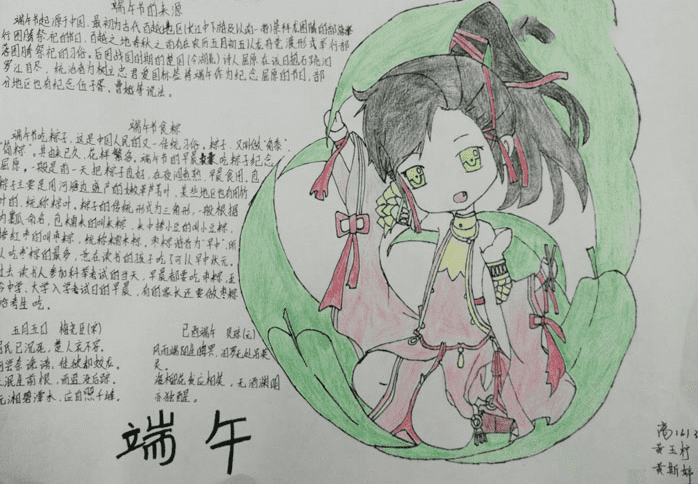 端午节的来源
端午节起源于中国，最初为古代百越地区(长江中下游及以南一带)崇拜龙图腾的部族举
行图腾祭祀的节日，百越之地春秋之前有在农历五月初五以龙舟竞渡形式举行部
落图腾祭祀的习俗。后因战国时期的楚国(今湖北)诗人屈原在该日抱石跳汨
罗江自尽，统治者为树立忠君爱国标签将端午作为纪念屈原的节日；部
分地区也有纪念伍子胥、曹娥等说法。
端午节食粽
端午节吃粽子，这是中国人民的又一传统习俗。粽子，又叫做"角黍"、
"筒粽"。其由来已久，花样繁多。端午节的早晨家家吃粽子纪念
屈原，一般是前一天把粽子包好，在夜间煮熟，早晨食用。包
粽子主要是用河塘边盛产的嫩芦苇叶，某些地区也有用竹
叶的，统称粽叶。粽子的传统形式为三角形，一般根据
内瓤命名，包糯米的叫米粽，米中掺小豆的叫小豆粽，
掺红枣的叫枣粽，统称糯米粽。枣粽谐音为"早中"，所
以吃枣粽的最多，意在读书的孩子吃了可以早中状元。
过去读书人参加科举考试的当天，早晨都要吃枣粽，至
今中学、大学入学考试日的早晨，有的家长还要做枣粽
给考生吃。
五月五日 梅尧臣(宋)
屈氏已沉死，楚人哀不容。
何尝奈谗谤，徒欲却蛟龙。
未泯生前恨，而追没后踪。
沅湘碧潭水，应自照千峰。
己酉端午 贝琼(元)
风雨端阳生晦冥，汨罗无处吊英
灵。
海榴花发应相笑，无酒渊明
亦独醒。
端午
黄玉柠